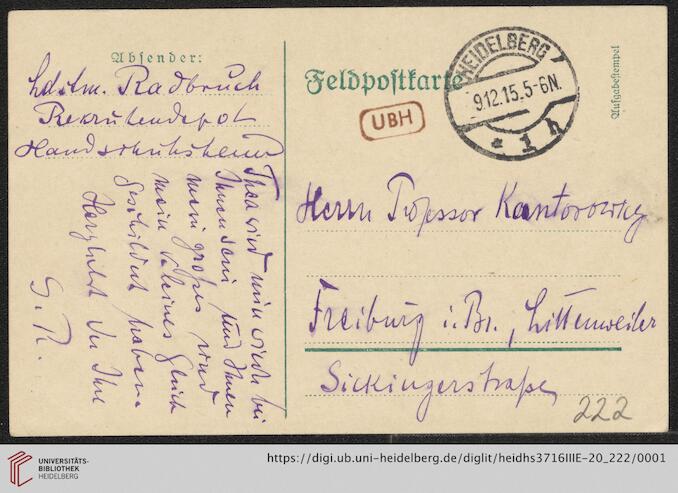 Absender:
Ldstm. Radbruch
Rekrutendepot
Handschuhsheim
Thea wird mir wieder bei
Ihnen sein und Ihnen
mein großes und
mein kleines Glück
geschildert haben.
Herzlichst der Ihre
G. R.
Feldpostkarte
UBH
HEIDELBERG
9.12.15.5-6N.
* 1 h
Aufgabestempel
Herrn Professor Kantorowicz
Freiburg i. Br., Littenweiler
Sickingerstraße
222
UNIVERSITÄTS-
BIBLIOTHEK
HEIDELBERG
https://digi.ub.uni-heidelberg.de/diglit/heidhs3716IIIE-20_222/0001